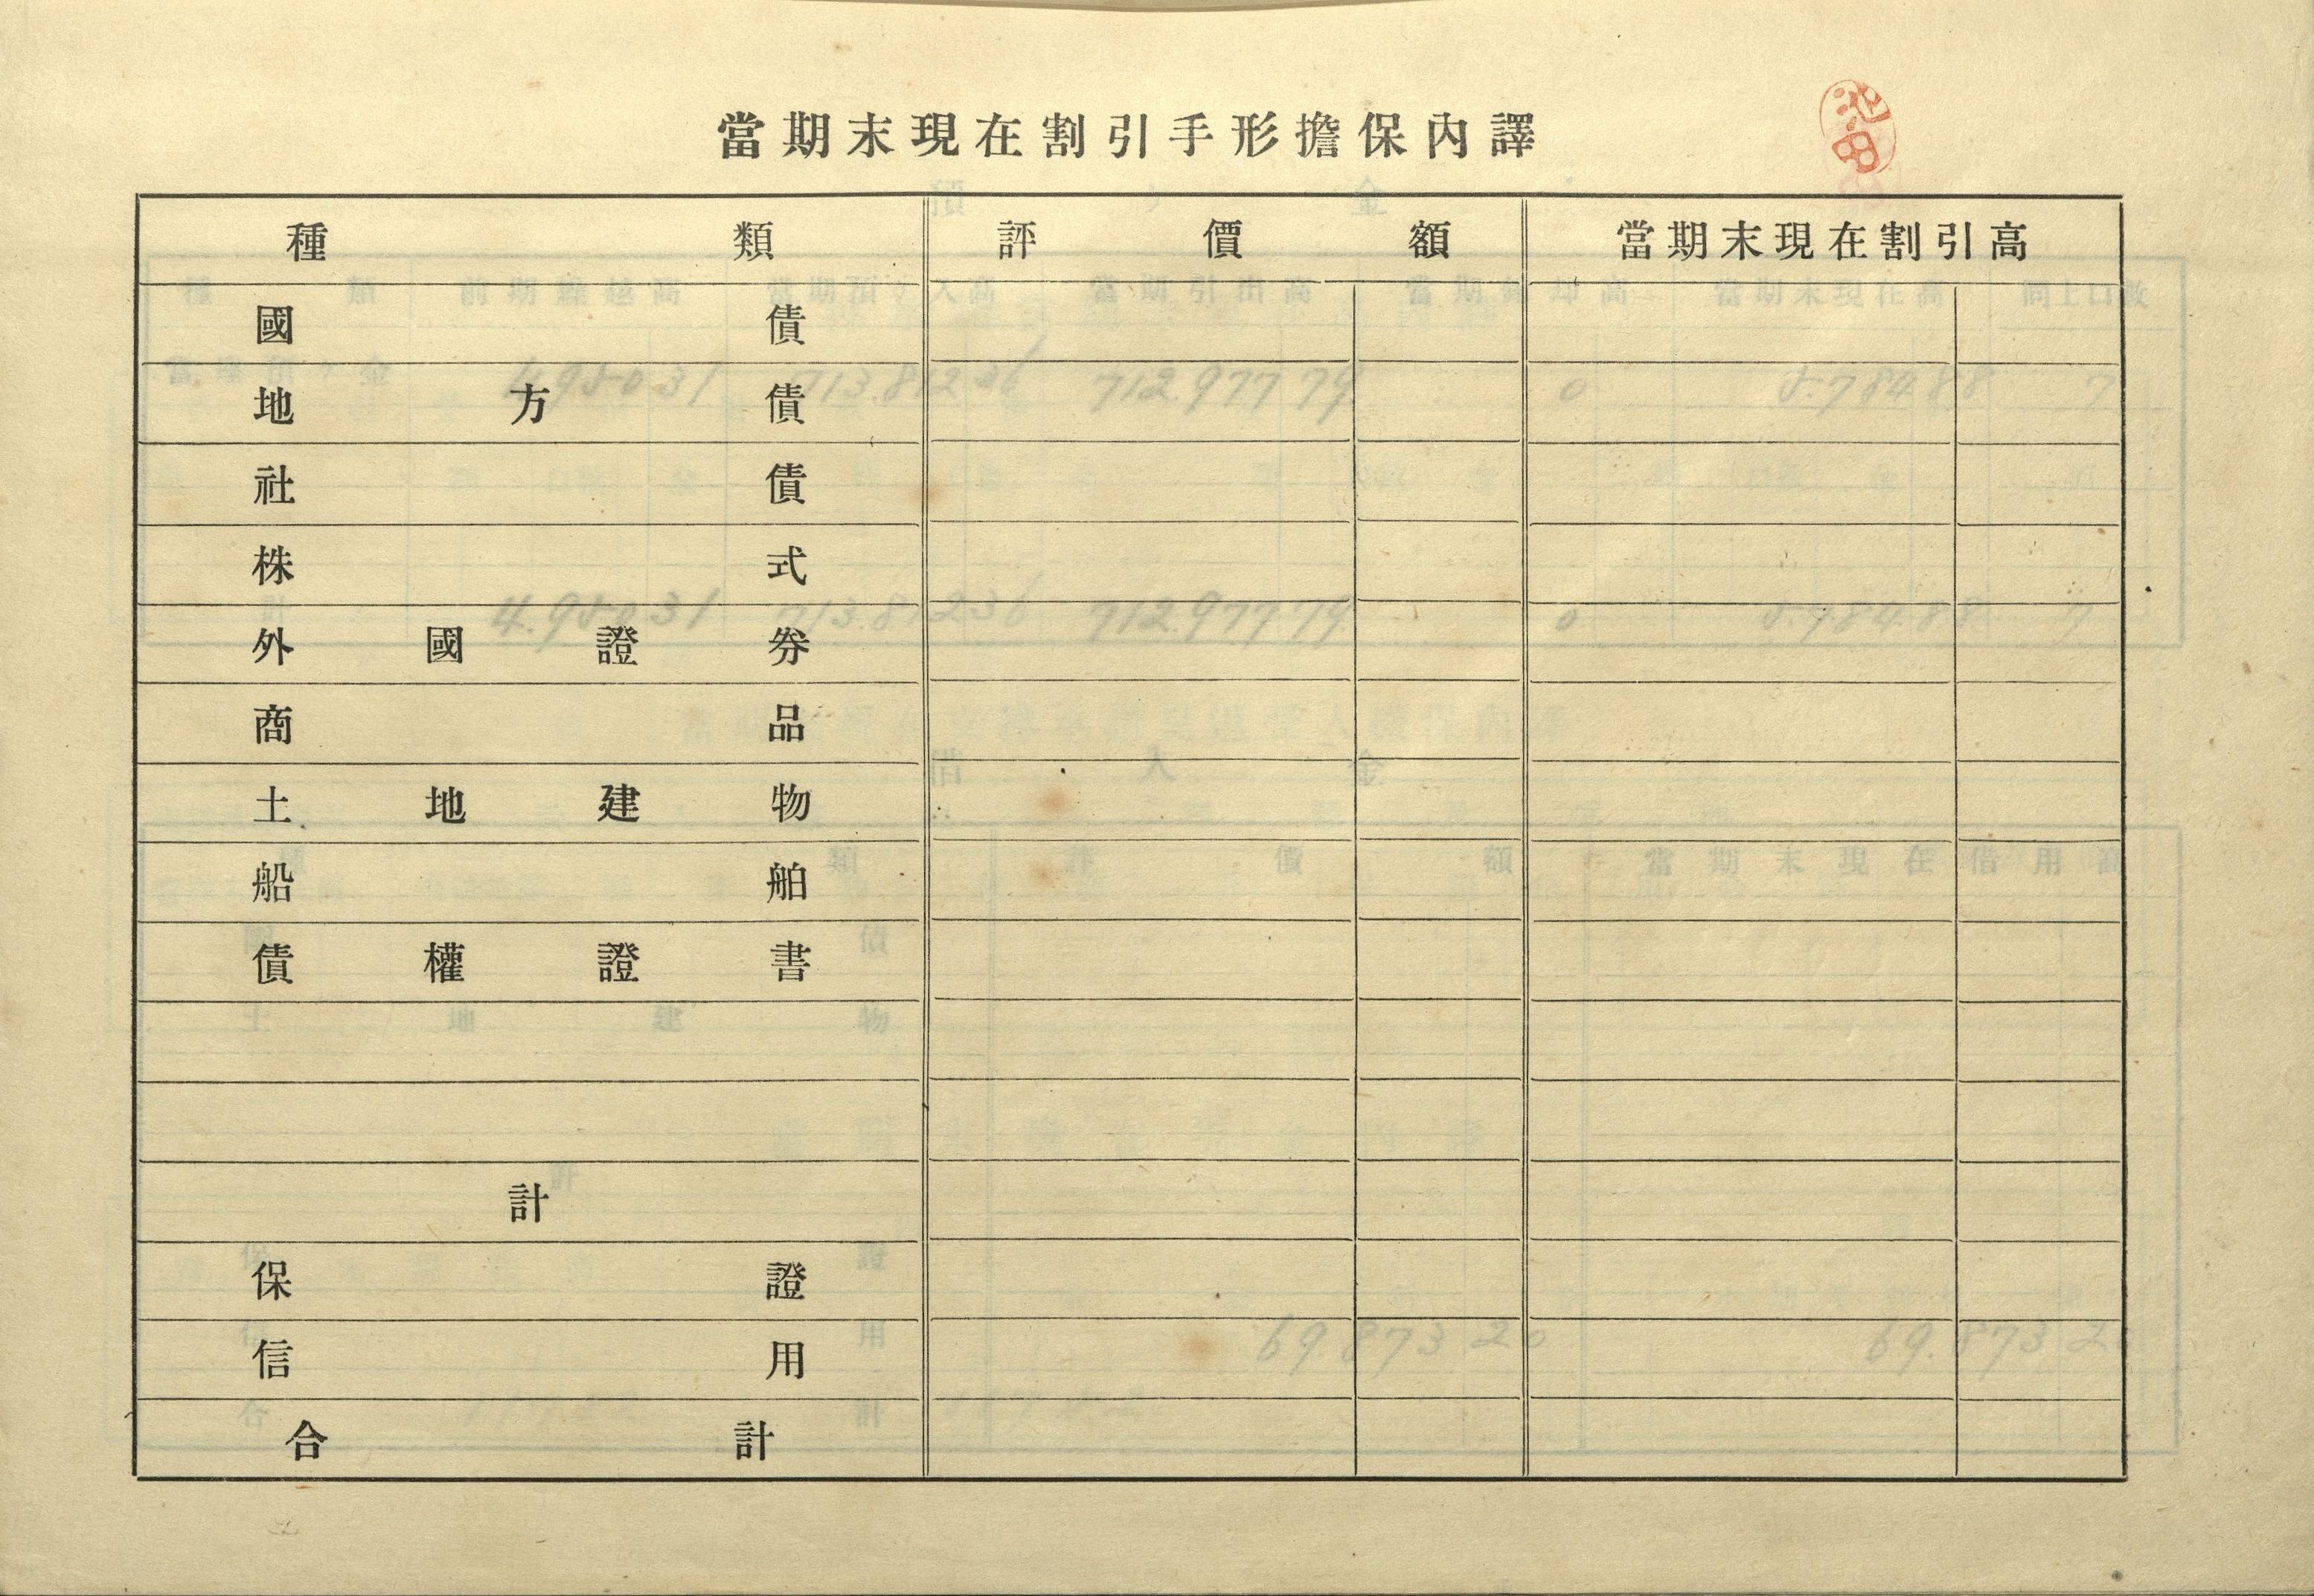 當期末現在割引手形擔保內譯
池田
種類 評價額 當期末現在割引高
國債
地方債
社債
株式
外國證券
商品
土地建物
船舶
債權證書
計
保證
信用
合計